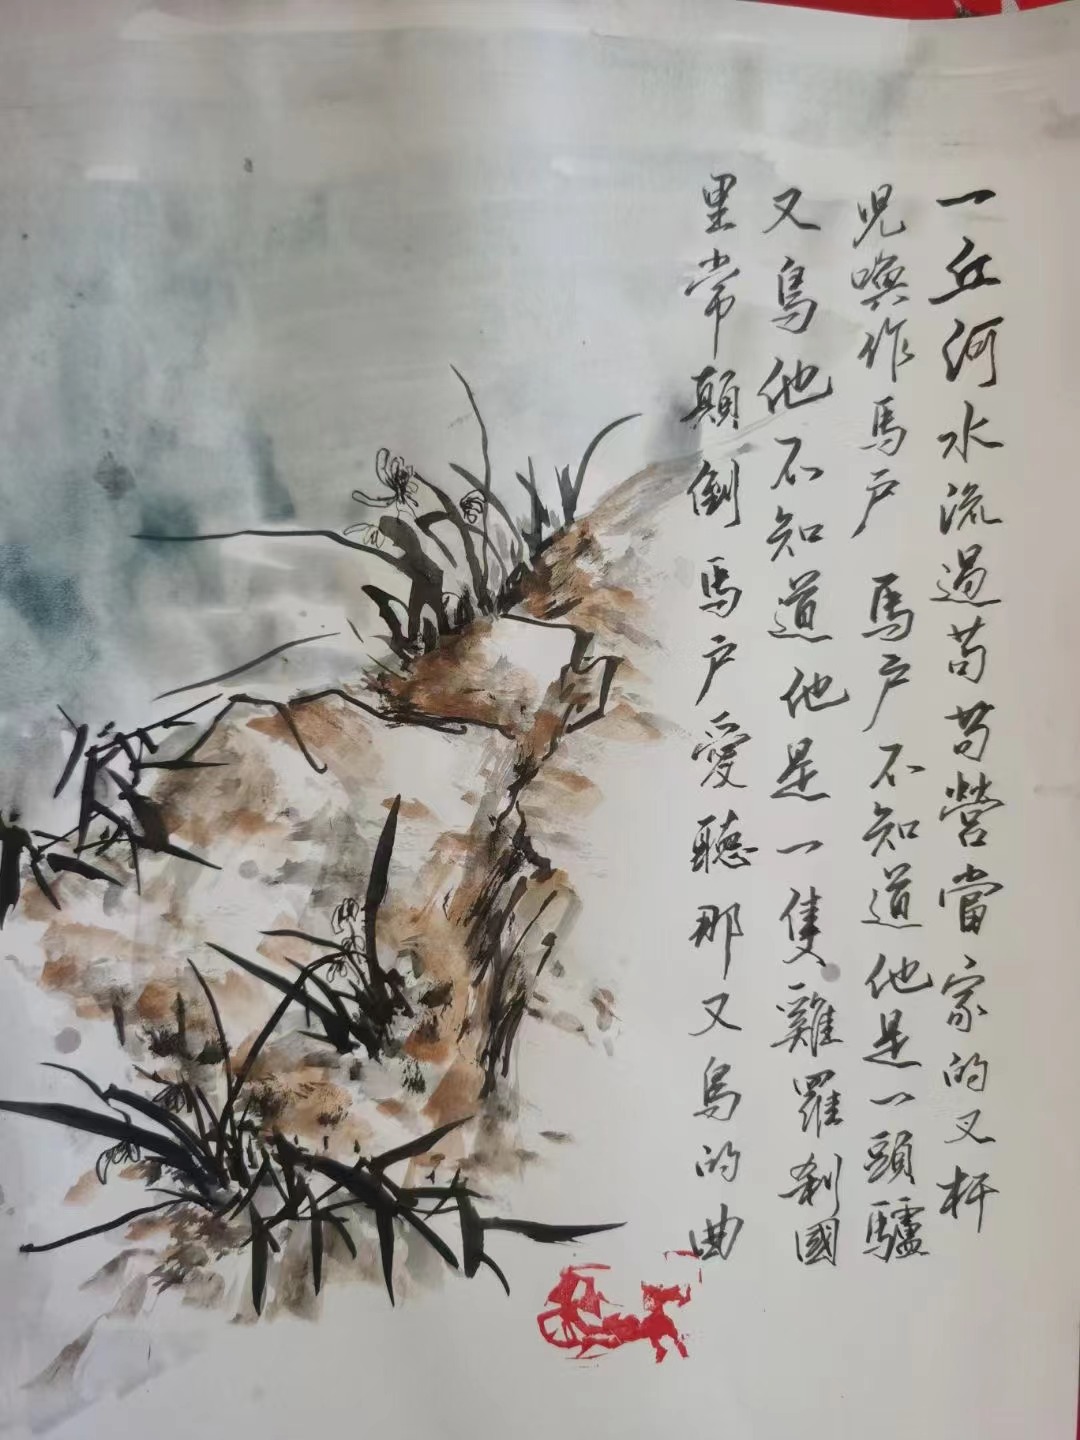 一丘河水流過苟苟營當家的叉杆
兒喚作馬户 馬户不知道他是一頭驢
又鳥他不知道他是一隻雞羅刹國
里常顛倒馬户愛聽那又鳥的曲